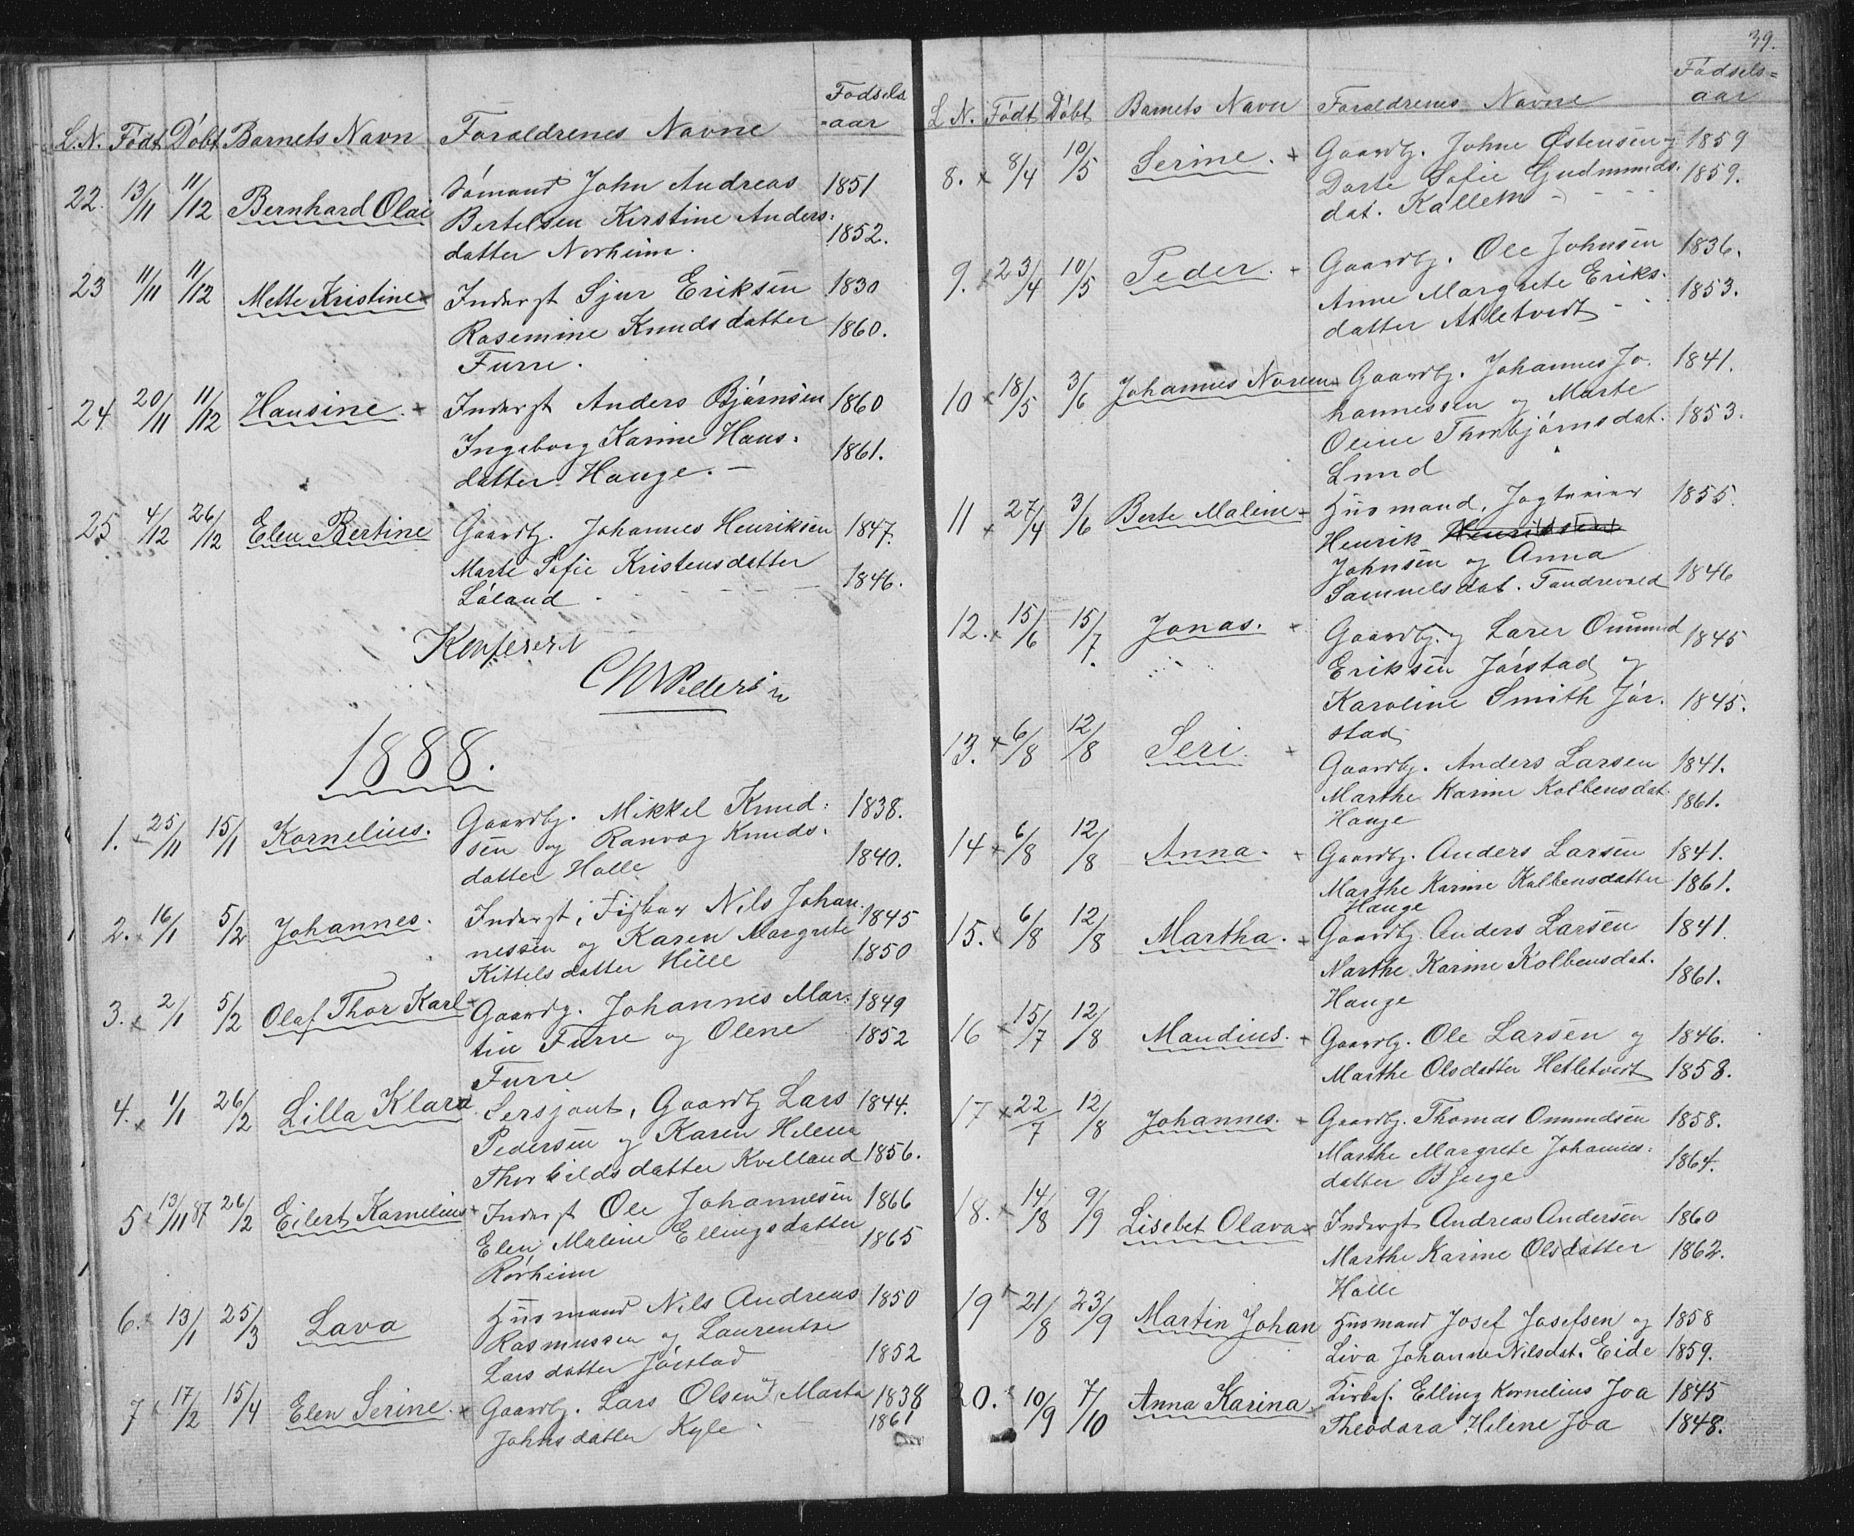 L.N. Født Døbt Barnets Navn Forældrenes Navne Fødsels
=aar
22. 13/11 11/12 Bernhard Olai Sømand John Andreas 1851
Bertelsen Kirstine Anders.
datter Norheim. 1852.
23 11/11 11/12 Mette Kristine x Inderst Sjur Eriksen 1830
Rasemine Knudsdatter 1860.
Furre.
24 20/11 11/12 Hansine. + Inderst Anders Bjørnsen 1860
Ingeborg Karine Hans.
datter Hauge. — 1861.
25 4/12 26/12 Elen Bertine Gaardb. Johannes Henriksen 1847.
Marte Sofie Kristensdatter
Løland 1846.
Konfereret
1888.
1. 25/11 15/1 Kornelius. Gaardb. Mikkel Knud: 1838.
sen og Ranvog Knuds.
datter Halle 1840.
2. x 16/1 5/2 Johannes. Inderst, Fisker Nils Johan 1845
nessen og Karen Margrete
Kittelsdatter Hille 1850
3. x 2/1 5/2 Olaf Thor Karl Gaardb. Johannes Mar: 1849
tin Furre og Olene 1852
Furre
4. x 1/1 26/2 Lilla Klara Sersjant, Gaardb Lars 1844.
Pedersen og Karen Helene
Thorkildsdatter Kvelland 1856.
5 x 13/11 87 26/2 Eilert Kornelius + Inderst Ole Johannesen 1866
Elen Maline Ellingsdatter 1865
Rørheim
6. x 13/1 25/3 Lava Husmand Nils Andreas 1850
Rasmussen og Laurentse
Larsdatter Jørstad 1852
7 x 17/2 15/4 Elen Serine. x Gaardb. Lars Olsen og Marta 1838
Johnsdatter Kyle. 1861
39.
L.N. Født Døbt Barnets Navn Forældrenes Navne Fødsels=
aar
8. x 8/4 10/5 Serine. + Gaardb. Johne Østensen og 1859
Dorte Sofie Gudmunds. 1859.
dat. Kallem
9. x 23/4 10/5 Peder. + Gaardb. Ole Johnsen 1836.
Anne Margrete Eriks.
datter Atletveit 1853.
10 x 18/5 3/6 Johannes Norem Gaardb. Johannes Jo. 1841.
hannessen og Marte
Oline Thorbjørnsdat. 1853.
Lund
11 x 27/4 3/6 Berte Maline + Husmand, Jagteier 1855.
Henrik Henriksen
Johnsen og Anna
Samuelsdat. Tandrevold 1846
12. x 15/6 15/7. Jonas. x Gaardb. og Lærer Ommund 1845
Eriksen Jørstad og
Karoline Smith Jør. 1845.
stad
13. x 6/8 12/8 Seri. + Gaardb. Anders Larsen 1841.
Marthe Karine Kolbensdat 1861.
Hauge
14 x 6/8 12/8 Anna. + Gaardb. Anders Larsen 1841.
Marthe Karine Kolbensdatter 1861.
Hauge
15. x 6/8 12/8 Martha. + Gaardb. Anders Larsen 1841.
Marthe Karine Kolbensdat. 1861.
Hauge
16 x 15/7 12/8 Mandius. + Gaardb. Ole Larsen og 1846.
Marthe Olsdatter Hetletveit 1858.
17 x 22/7 12/8 Johannes. + Gaardb. Thomas Ommundsen 1858.
Marthe Margrete Johannes: 1864.
datter Bjuge
18. x 14/8 9/9 Lisebet Olava x Inderst Andreas Andersen 1860
Marthe Karine Olsdatter 1862.
Halle
19 x 21/8 23/9 Martin Johan Husmand Josef Josefsen og 1858
Liva Johanne Nilsdat. Eide 1859.
20. 10/9 7/10 Anna Karina x Kirkes. Elling Kornelius Joa 1845
Theodora Helene Joa 1848.